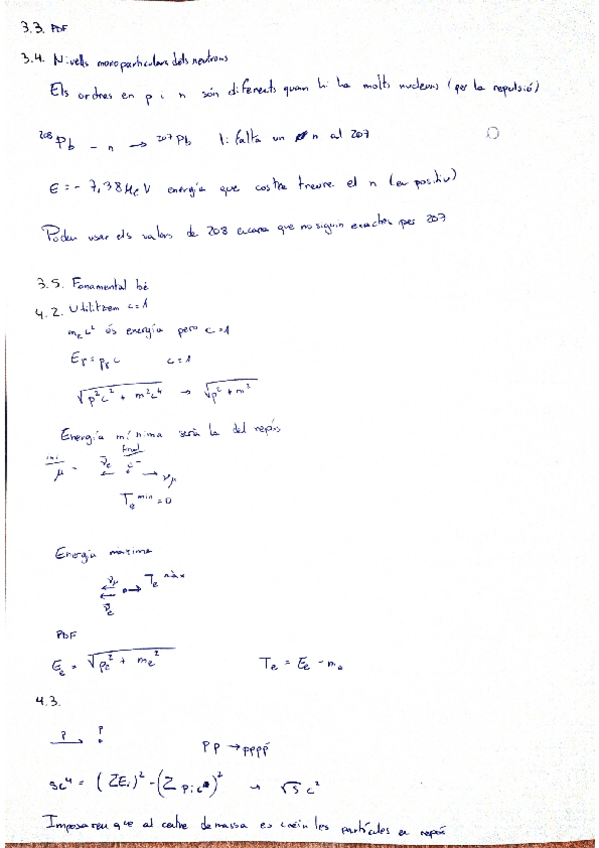 3.3. PDF
3.4. Nivells monoparticulars dels neutrons
Els ordres en p i n són diferents quan hi ha molts nucleons (per la repulsió)
²⁰⁸Pb - n → ²⁰⁷Pb 1: falta un n al 207
E = - 7,38 MeV energía que costra treure el n (en positiu)
Poden usar els valors de 208 encara que no siguin exactes per 207
3.5. Fonamental bé
4.2. Utilitzem c=1
mₑc² és energía pero c=1
Eᵣ = pᵣ c c=1
√p²c² + m²c⁴ → √p² + m²
Energía mínima serà la del repòs
ini final
μ⁻ ν̄ₑ ← e⁻ → ν_μ
Tₑ ᵐⁱⁿ = 0
Energía maxima
ν_μ ← → Tₑ ᵐàˣ
ν̄ₑ ←
PDF
Eₑ = √pₑ² + mₑ² Tₑ = Eₑ - mₑ
4.3.
p → p
pp → pppp̄
sc⁴ = (ΣEᵢ)² - (Σpᵢc)² → √s c²
Imposarem que al centre de massa es creïn les partícules en repòs